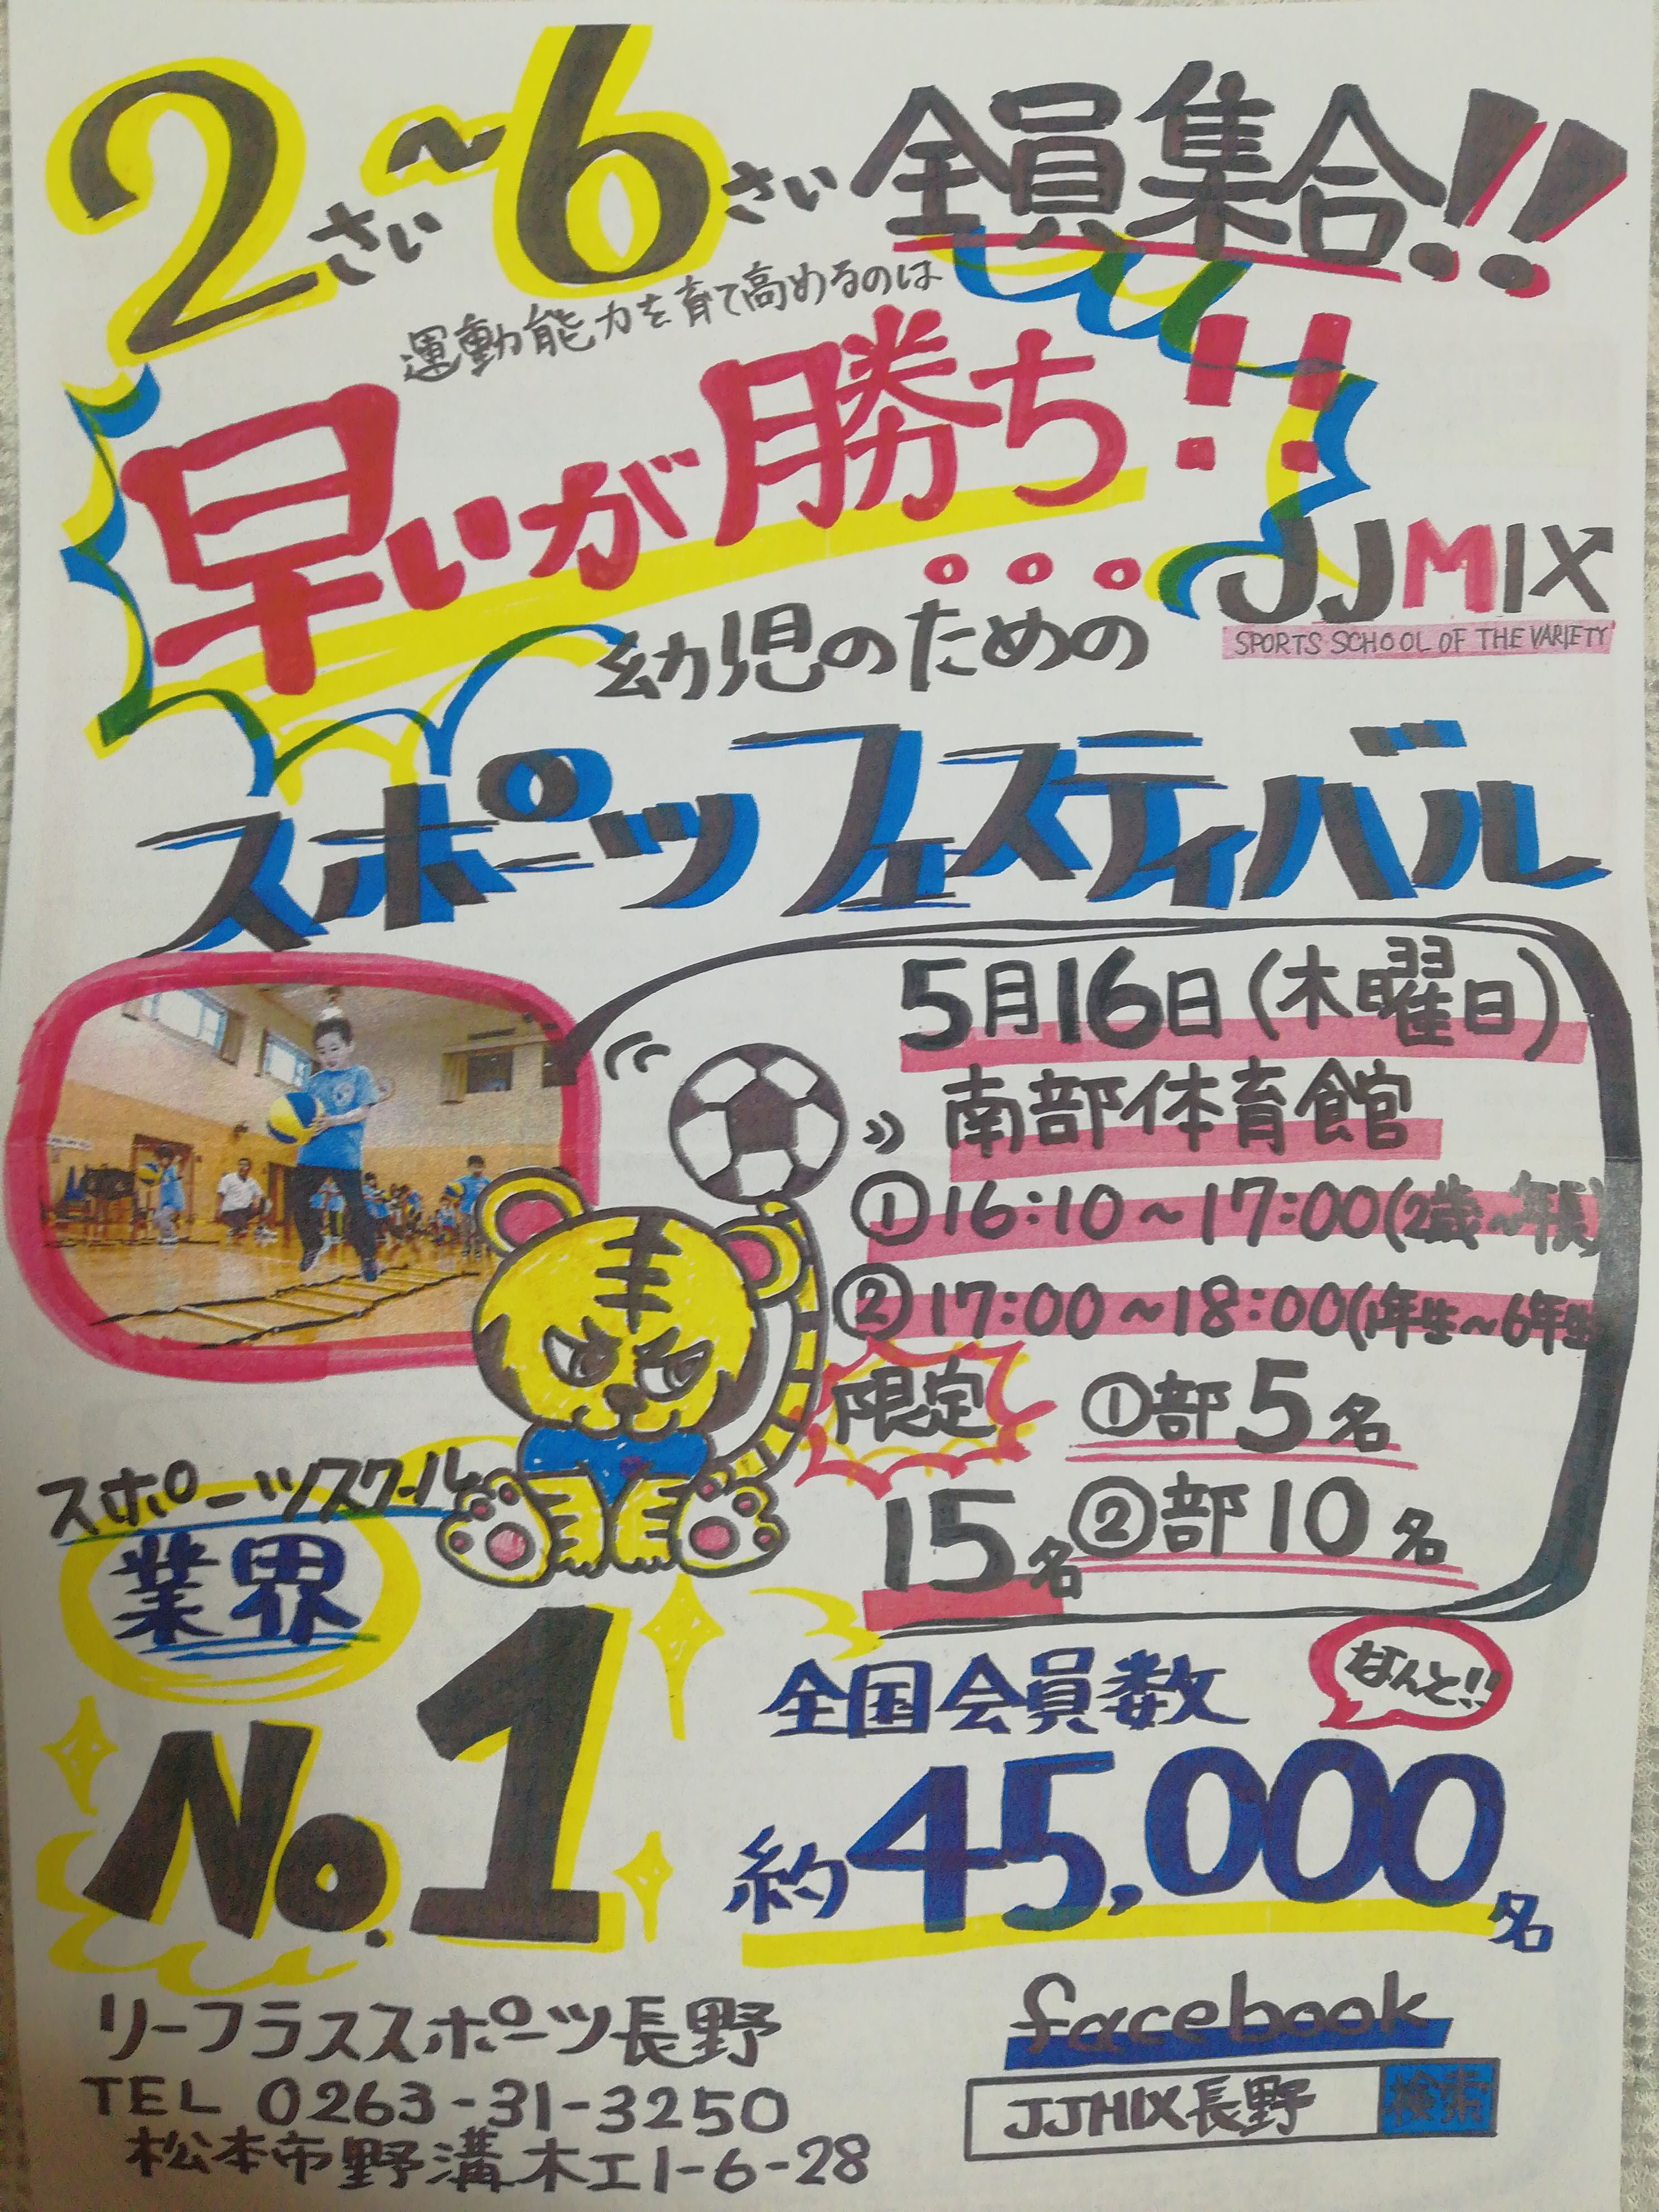 2さい~6さい 全員集合!!
運動能力を育て高めるのは
早いが勝ち!!
幼児のための
JJMIX
SPORTS SCHOOL OF THE VARIETY
スポーツフェスティバル
5月16日(木曜日)
南部体育館
①16:10~17:00(2歳~年長)
②17:00~18:00(1年生~6年生
限定 ①部5名
15名 ②部10名
スポーツスクール
業界
No.1
全国会員数 なんと!!
約45,000名
リーフラススポーツ長野
TEL 0263-31-3250
松本市野溝木工1-6-28
facebook
JJMIX長野 検索